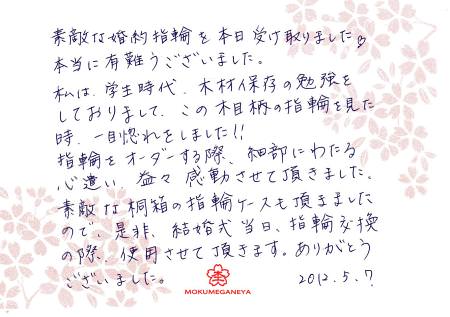 素敵な婚約指輪を本日受け取りました♡
本当に有難うございました。
私は、学生時代、木材保存の勉強を
しておりまして、この木目柄の指輪を見た
時、一目惚れをしました!!
指輪をオーダーする際、細部にわたる
心遣い、益々感動させて頂きました。
素敵な桐箱の指輪ケースも頂きました
ので、是非、結婚式当日、指輪交換
の際、使用させて頂きます。ありがとう
ございました。 2012.5.7
MOKUMEGANEYA